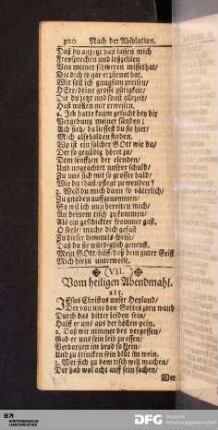 300 Nach der Absolution.
Daß du anjetzt hast lassen mich
Freysprechen und loßzehlen
Von meiner schweren missethat/
Wie dich so gar erzürnet hat.
Wie soll ich gnugsam preisen/
HErr/ deine grosse gütigkeit/
Die du jetzt und sonst allzeit/
Hast wollen mir erweisen.
2. Ich hatte kaum gesucht bey dir
Vergebung meiner sünden:
Ach sieh/ da liessest du sie hier/
Mich alsobalden finden.
Wo ist ein solcher GOtt wie du/
Der so geduldig höret zu
Dem seufftzen der elenden/
Und ungeachtet unsrer schuld/
Zu uns sich mit so grosser huld/
Wie du thust/ pflegt zu wenden?
3. Weil du mich dann so väterlich/
Zu gnaden auffgenommen/
So wil ich nun bereiten mich/
Zu deinem tisch zu kommen/
Als ein geschickter frommer gast.
O seele/ mache dich gefast
Zu dieser himmels-speise/
Daß du sie würdiglich geneust.
Mein GOtt/ hilff/ daß dein guter Geist
Mich hiezu unterweise.
(VII.)
Vom heiligen Abendmahl.
215.
JEsus Christus unser Heyland/
Der von uns den Gottes zorn wand
Durch das bitter leiden sein
Halff er uns aus der höllen pein.
2. Daß wir nimmer des vergessen/
Gab er uns sein leib zu essen/
Verborgen im brod so klein/
Und zu trincken sein blut im wein.
3. Wer sich zu dem tisch will machen/
Der hab wol acht auff sein sachen/
Wer
DFG